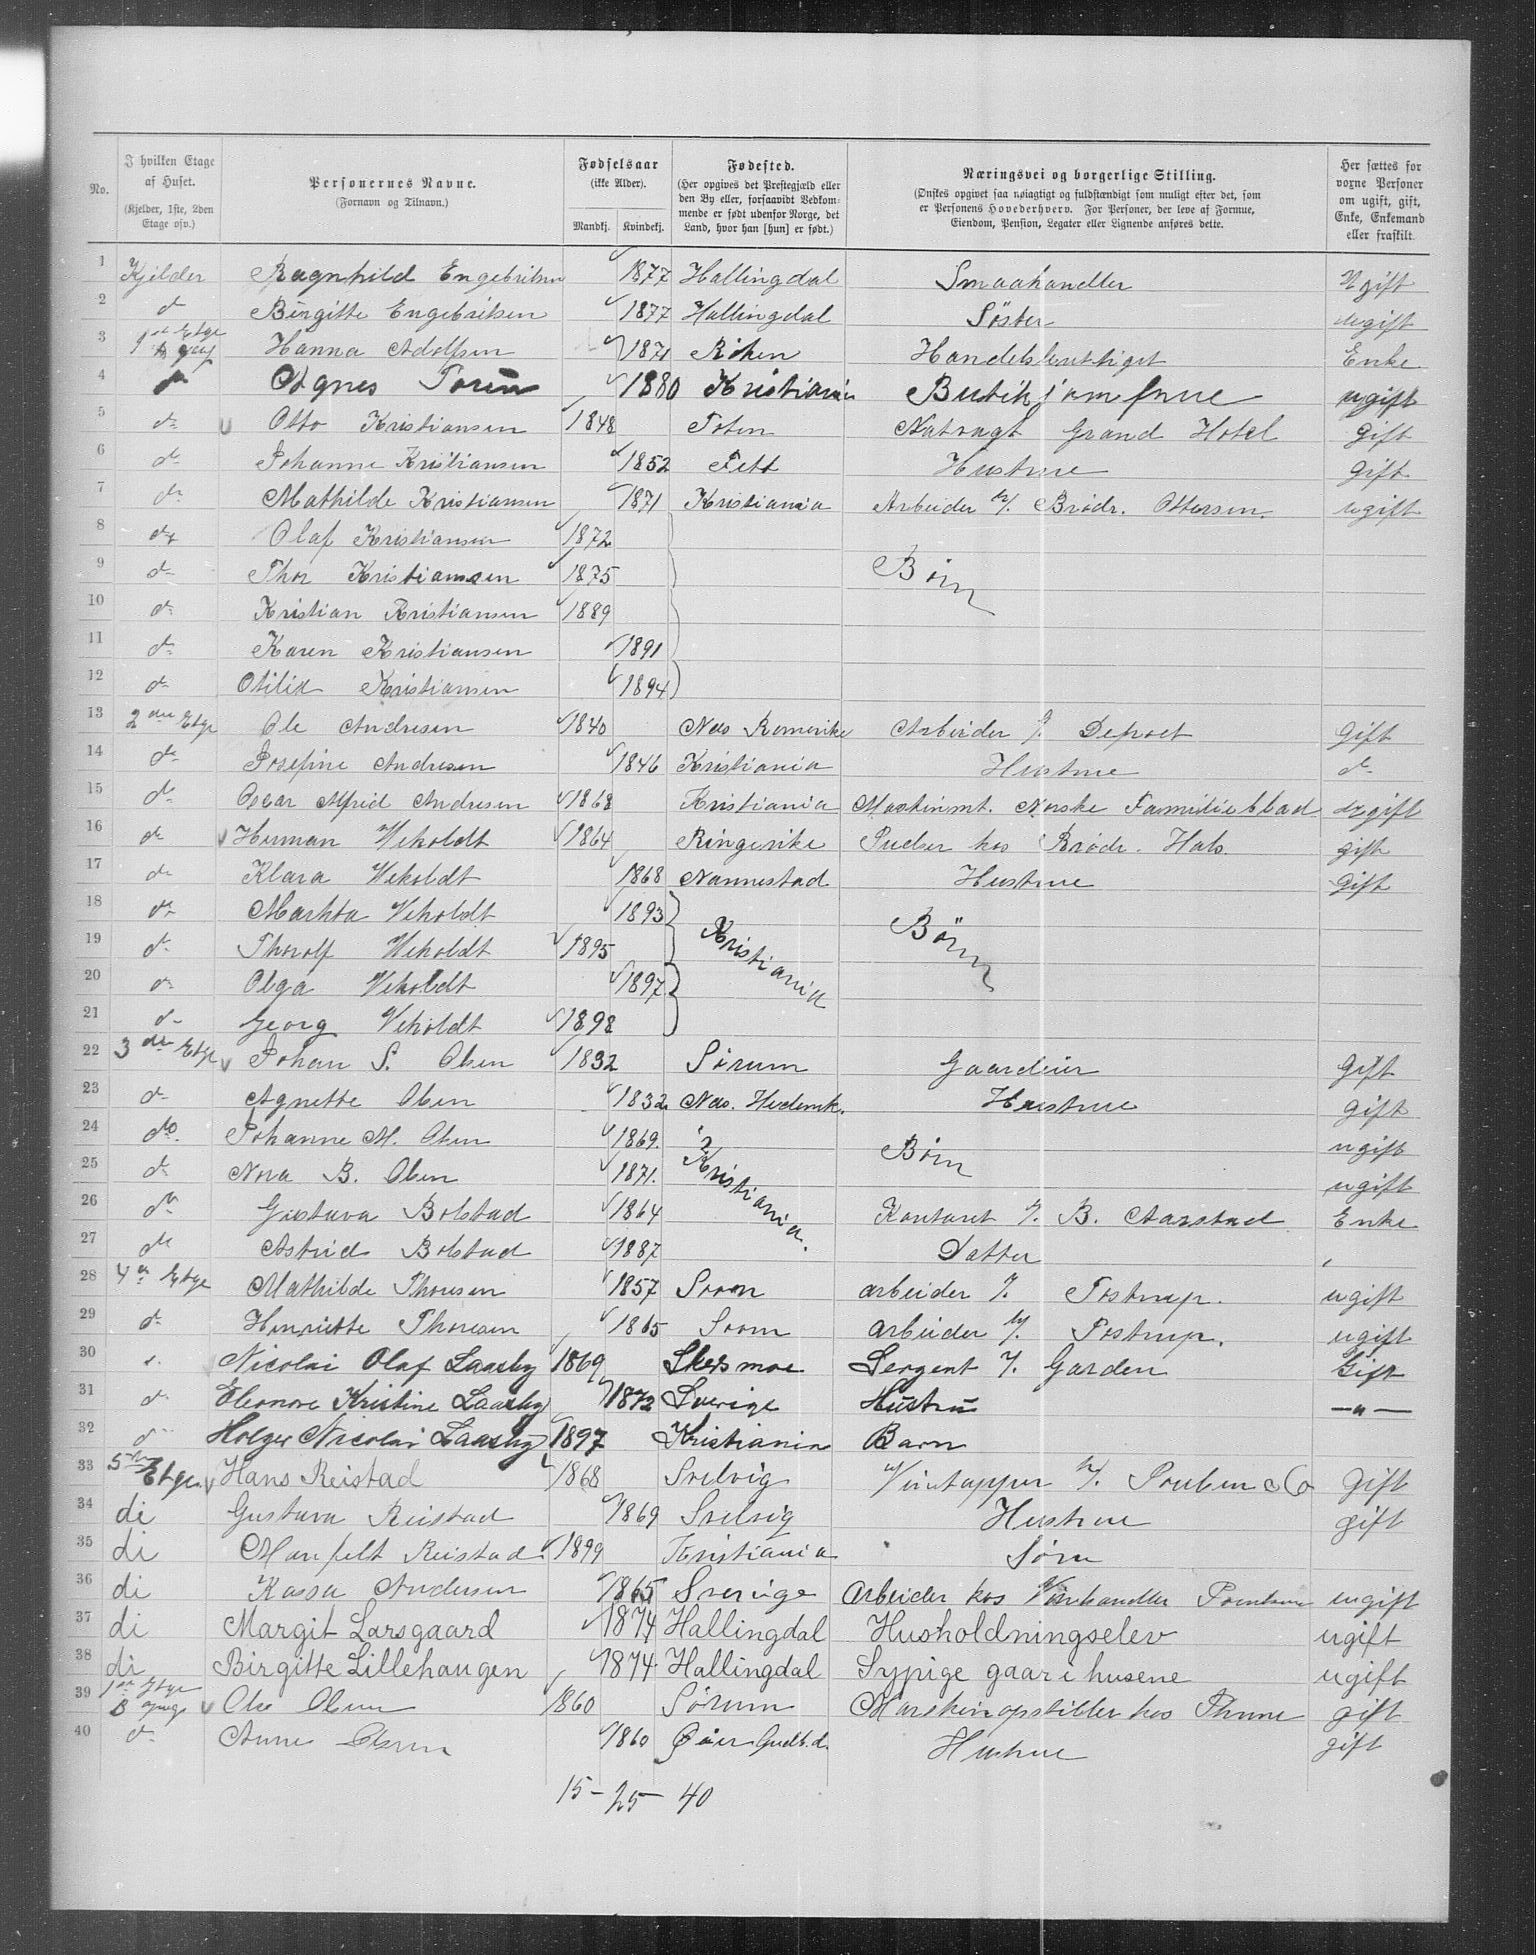 No. | I hvilken Etage af Huset. (Kjelder, 1ste, 2den Etage osv.) | Personernes Navne. (Fornavn og Tilnavn.) | Fødselsaar (ikke Alder). Mandkj. Kvindekj. | Fødested. (Her opgives det Prestegjæld eller den By eller, forsaavidt Vedkommende er født udenfor Norge, det Land, hvor han [hun] er født.) | Næringsvei og borgerlige Stilling. (Ønskes opgivet saa nøiagtigt og fuldstændigt som muligt efter det, som er Personens Hovederhverv. For Personer, der leve af Formue, Eiendom, Pension, Legater eller Lignende anføres dette. | Her sættes for voxne Personer om ugift, gift, Enke, Enkemand eller fraskilt.
1 Kjelder Ragnhild Engebritsen 1877 Hallingdal Smaahandler Ugift
2 d Birgitte Engebritsen 1877 Hallingdal Søster ugift
3 1st Etge Hanna Adolfsen 1871 Røken Handelsberettiget Enke
4 Agnes 1880 Kristiania Butikjomfrue ugift
5 do Otto Kristiansen 1848 Toten Natvagt Grand Hotel Gift
6 do Johanne Kristiansen 1852 Fett Hustrue gift
7 do Mathilde Kristiansen 1871 Kristiania Arbeider v/. Brødr. Ottersen. ugift
8 do Olaf Kristiansen 1872
9 do Thor Kristiansen 1875 Børn
10 do Kristian Kristiansen 1889
11 do Karen Kristiansen 1891
12 do Otilie Kristiansen 1894
13 2den Etge Ole Andresen 1840 Nes Romerike Arbeider v/. Depoet Gift
14 do Josefine Andresen 1846 Kristiania Hustrue do
15 do Oscar Alfrid Andresen 1868 Kristiania Maskinmt. Norske Familieblad ugift
16 do Herman Vekoldt 1864 Ringerike Pudser hos Brødr. Hals. gift
17 do Klara Vekoldt 1868 Nannestad Hustrue Gift
18 do Martha Vekoldt 1893 Kristiania Børn
19 do Thorolf Vekoldt 1895
20 do Olga Vekoldt 1897
21 d Georg Vekoldt 1898
22 3die Etge Johan S. Olsen 1832 Sørum Gaardeier Gift
23 do Agnette Olsen 1832 Nes. Hedemk. Hustrue Gift
24 do. Johanne M. Olsen 1869. Kristiania. Børn ugift
25 do Nora B. Olsen 1871. ugift
26 do Gustava Bolstad 1864 Kontoret v/. B. Aarstad Enke
27 do Astrid Bolstad 1887 Datter
28 4de Etge Mathilde Thoresen 1857 Soon arbeider v/. Tostrup. ugift
29 do Henriette Thoresen 1865 Soon Arbeider v/. Tostrup. ugift
30 Nicolai Olaf Laasby 1869 Skedsmoe Sergent v/. Garden Gift
31 d Eleonore Kristine Laasby 1872 Sverige Hustru —"—
32 d Holger Nicolai Laasby 1897 Kristiania Barn
33 5te Etge. Hans Reistad 1868 Svelvig Vintapper v/. & Co Gift
34 di Gustava Reistad 1869 Svelvig Hustrue gift
35 di Reistad 1899 Kristiania Søn
36 di Andersen 1865 Sverige Arbeider hos Vinhandler ugift
37 di Margit Larsgaard 1874 Hallingdal Husholdningselev ugift
38 di Birgitte Lillehaugen 1874 Hallingdal Sypige gaar i husene ugift
39 1ste Etge B opng Ole Olsen 1860 Sørum Maskinopstiller hos Thune gift
40 do Anne Olsen 1860 Øier Gudb.d. Hustrue gift
15 - 25 - 40